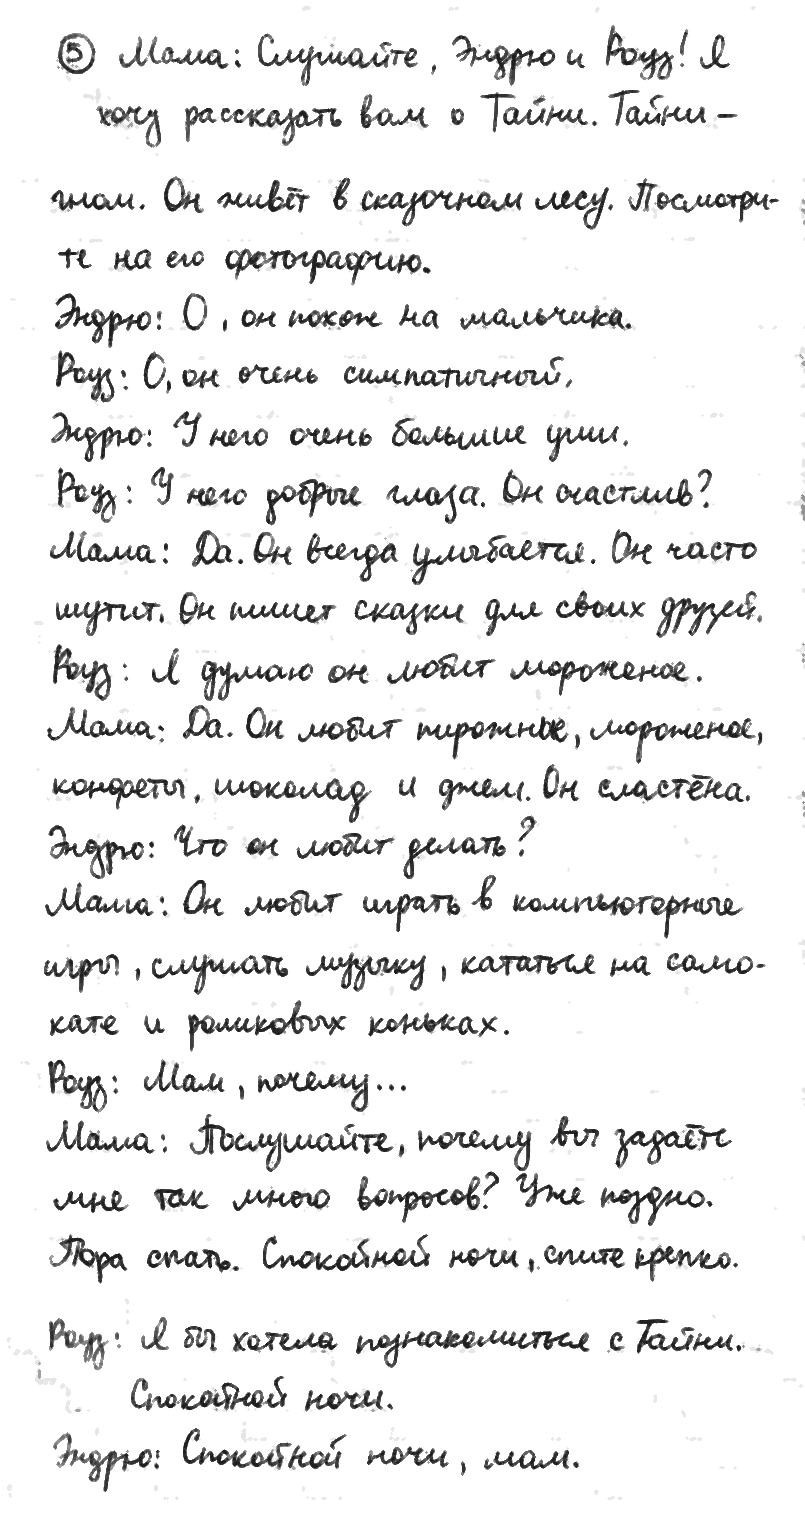 ⑤ Мама: Слушайте, Эндрю и Роуз! Я
хочу рассказать вам о Тайни. Тайни –
гном. Он живёт в сказочном лесу. Посмотри-
те на его фотографию.
Эндрю: О, он похож на мальчика.
Роуз: О, он очень симпатичный.
Эндрю: У него очень большие уши.
Роуз: У него добрые глаза. Он счастлив?
Мама: Да. Он всегда улыбается. Он часто
шутит. Он пишет сказки для своих друзей.
Роуз: Я думаю он любит мороженое.
Мама: Да. Он любит пирожные, мороженое,
конфеты, шоколад и джем. Он сластёна.
Эндрю: Что он любит делать?
Мама: Он любит играть в компьютерные
игры, слушать музыку, кататься на само-
кате и роликовых коньках.
Роуз: Мам, почему...
Мама: Послушайте, почему вы задаёте
мне так много вопросов? Уже поздно.
Пора спать. Спокойной ночи, спите крепко.
Роуз: Я бы хотела познакомиться с Тайни.
Спокойной ночи.
Эндрю: Спокойной ночи, мам.